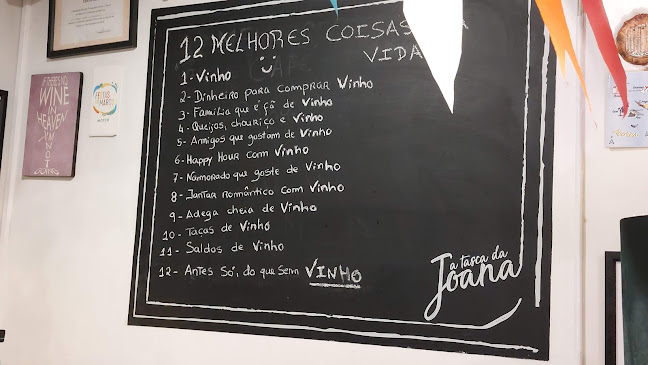 12 MELHORES COISAS
VIDA
1 - Vinho
2 - Dinheiro para comprar Vinho
3 - Familia que é fã de Vinho
4 - Queijos, chouriço e Vinho
5 - Amigos que gostam de Vinho
6 - Happy Hour com Vinho
7 - Namorado que goste de Vinho
8 - Jantar romântico com Vinho
9 - Adega cheia de Vinho
10 - Taças de Vinho
11 - Saldos de Vinho
12 - Antes só, do que sem VINHO
a tasca da
Joana
WINE
IN
HEAVEN